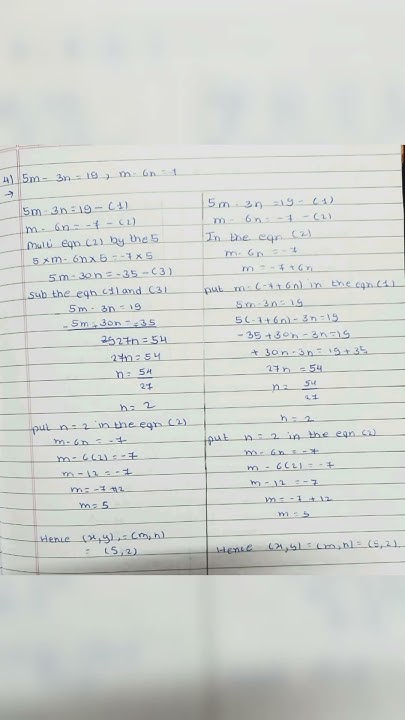 4) 5m - 3n = 19, m - 6n =
→
5m - 3n = 19 - (1)
m - 6n = -7 - (2)
Multi eqn (2) by the 5
5 × m - 6n × 5 = -7 × 5
5m - 30n = -35 - (3)
Sub the eqn (1) and (3)
5m - 3n = 19
- 5m + 30n = +35
27n = 54
27n = 54
n = 54
27
n = 2
put n = 2 in the eqn (2)
m - 6n = -7
m - 6(2) = -7
m - 12 = -7
m = -7 + 12
m = 5
Hence (x, y), = (m, n)
= (5, 2)
5m - 3n = 19 - (1)
m - 6n = -7 - (2)
In the eqn (2)
m - 6n = -7
m = -7 + 6n
put m = (-7 + 6n) in the eqn (1)
5m - 3n = 19
5(-7 + 6n) - 3n = 19
-35 + 30n - 3n = 19
+ 30n - 3n = 19 + 35
27n = 54
n = 54
27
n = 2
put n = 2 in the eqn (2)
m - 6n = -7
m - 6(2) = -7
m - 12 = -7
m = -7 + 12
m = 5
Hence (x, y) = (m, n) = (5, 2)